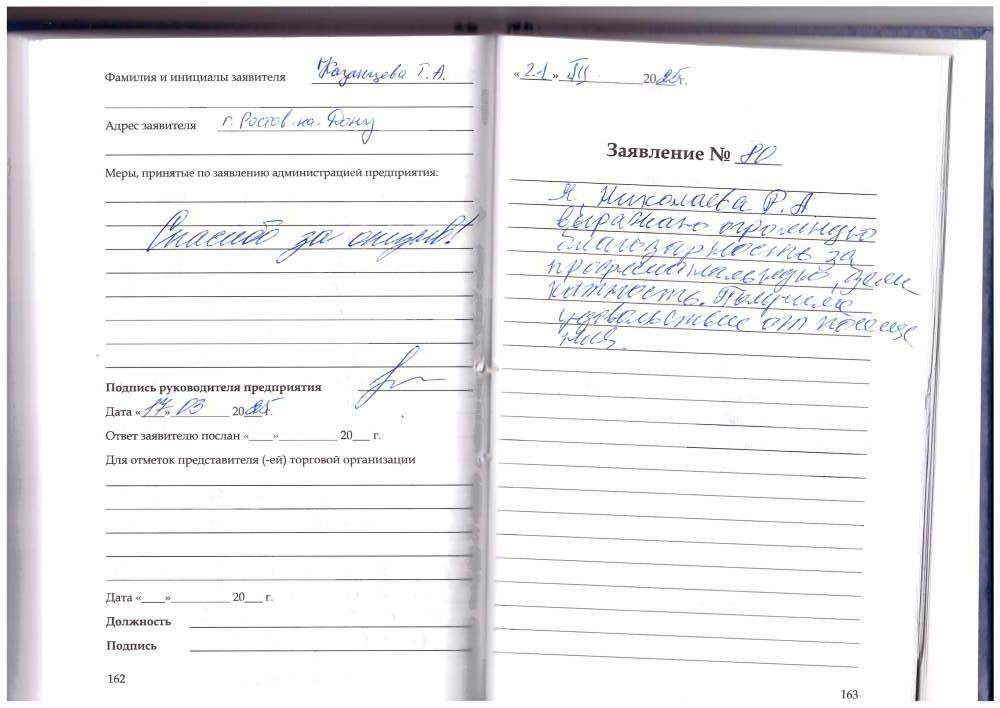 Фамилия и инициалы заявителя Казанцева Т. А.
Адрес заявителя г. Ростов-на-Дону
Меры, принятые по заявлению администрацией предприятия:
Спасибо за отзыв!
Подпись руководителя предприятия
Дата «17» 03 2025 г.
Ответ заявителю послан «____»__________ 20___ г.
Для отметок представителя (-ей) торговой организации
Дата «____»__________ 20___ г.
Должность
Подпись
162
«21» III 2025 г.
Заявление № 80
Я, Николаева Р. А.
выражаю огромную
благодарность за
профессиональную, дели
катность. Получила
удовольствие от посеще
ния.
163